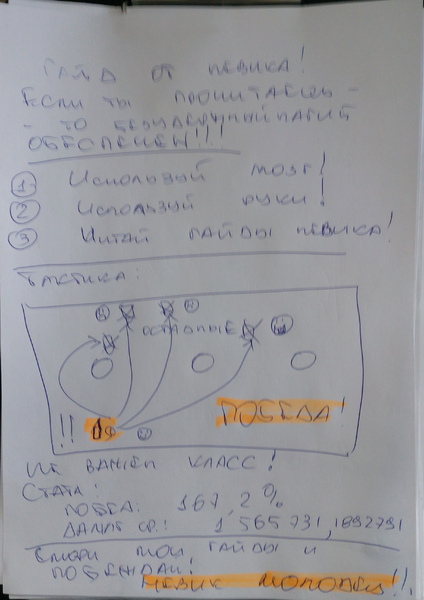 ГАЙД ОТ ЛЕВИКА!
ЕСЛИ ТЫ ПРОЧИТАЕШЬ -
- ТО БЕЗУДЕРЖНЫЙ НАГИБ
ОБЕСПЕЧЕН!!!
1 ИСПОЛЬЗУЙ МОЗГ!
2 ИСПОЛЬЗУЙ РУКИ!
3 ЧИТАЙ ГАЙДЫ ЛЕВИКА!
ТАКТИКА:
ОСТАЛЬНЫЕ
ПОБЕДА!
!! Я
НЕ ВАЖЕН КЛАСС!
СТАТА:
ПОБЕД: 167,2%
ДАМАГ СР.: 1 565731,1892791
СМОТРИ МОИ ГАЙДЫ И
ПОБЕЖДАЙ!
ЛЕВИК МОЛОДЕЦ!!